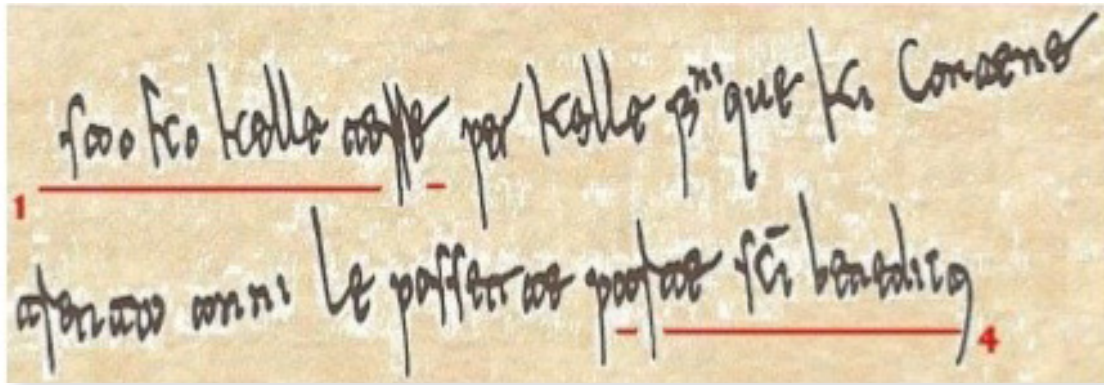 sao ko kelle terre per kelle fini que ki contene
1
trenta anni le possette parte sc̄i benedicti
4